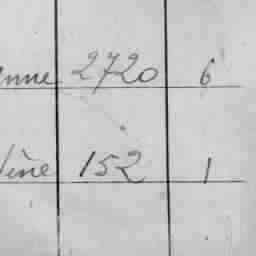 enne 2720 6
dène 152 1